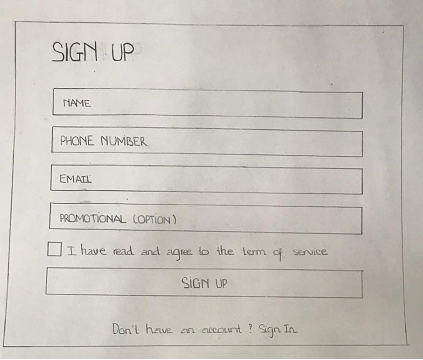 SIGN UP
NAME
PHONE NUMBER
EMAIL
PROMOTIONAL (OPTION)
I have read and agree to the term of service
SIGN UP
Don't have an account ? Sign In